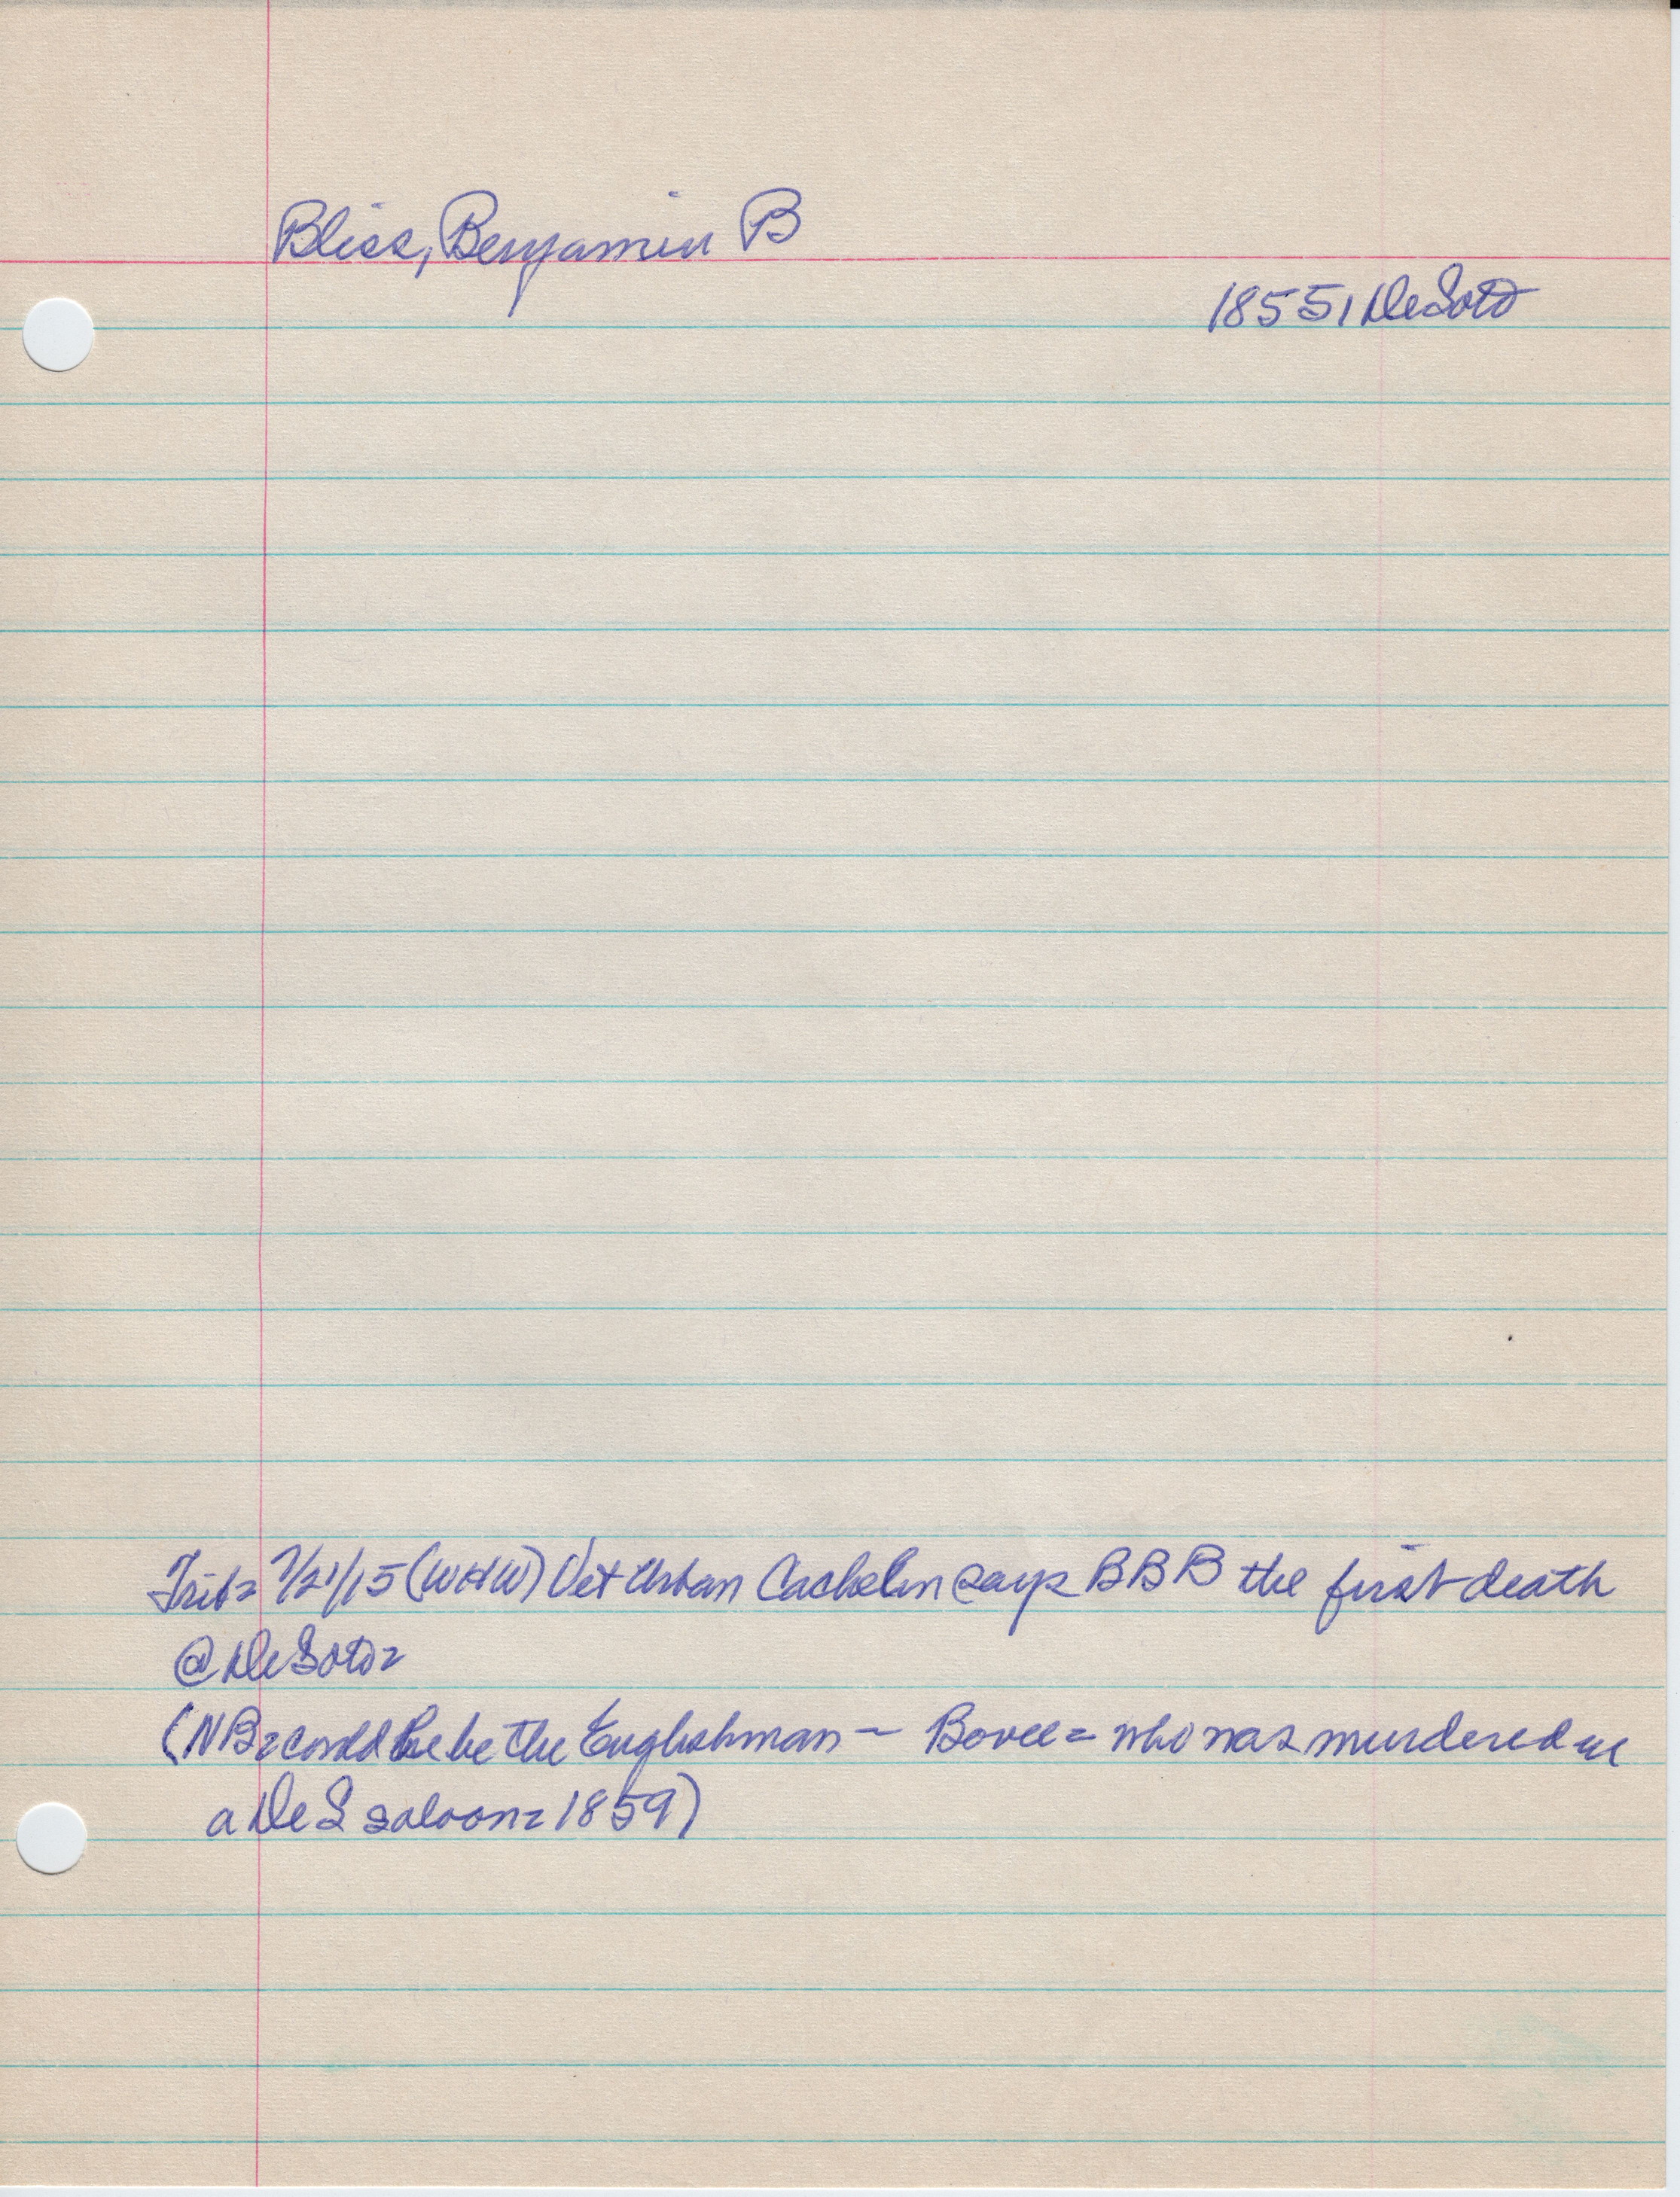 Bliss, Benjamin B
1855, DeSoto
Trib= 7/21/15 (WHW) Vet Urban Cachelin says BBB the first death
@ DeSoto=
(NB= could he be the Englishman - Bovee= who was murdered in
a De S saloon= 1859)